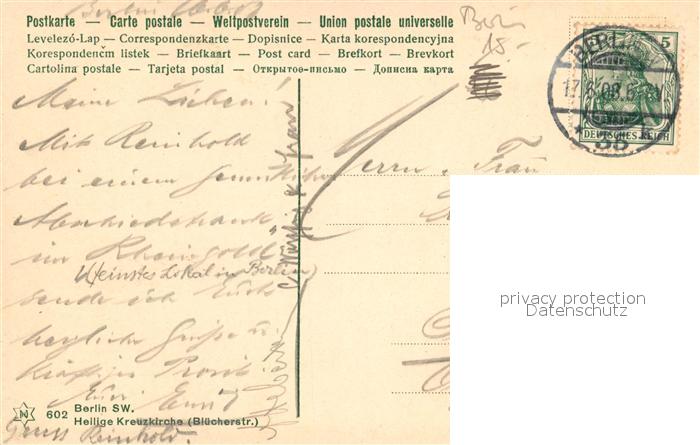 Postkarte — Carte postale — Weltpostverein — Union postale universelle
Levelező-Lap — Correspondenzkarte — Dopisnice — Karta korespondencyjna
Korespondenčm listek — Briefkaart — Post card — Brefkort — Brevkort
Cartolina postale — Tarjeta postal — Открытое-письмо — Дописна карта
Berlin
15.-
BERLIN
17.6.08.6-7
5
DEUTSCHES REICH
Meine Lieben!
Mit Reinhold
bei einem
im Rheingold
(feinstes Lokal in Berlin)
sende ich Euch
herzliche Grüße u.
kräftiges Prosit
Euer Ernst
Gruss Reinhold.
Herrn u. Frau
privacy protection
Datenschutz
N 602 Berlin SW.
Heilige Kreuzkirche (Blücherstr.)